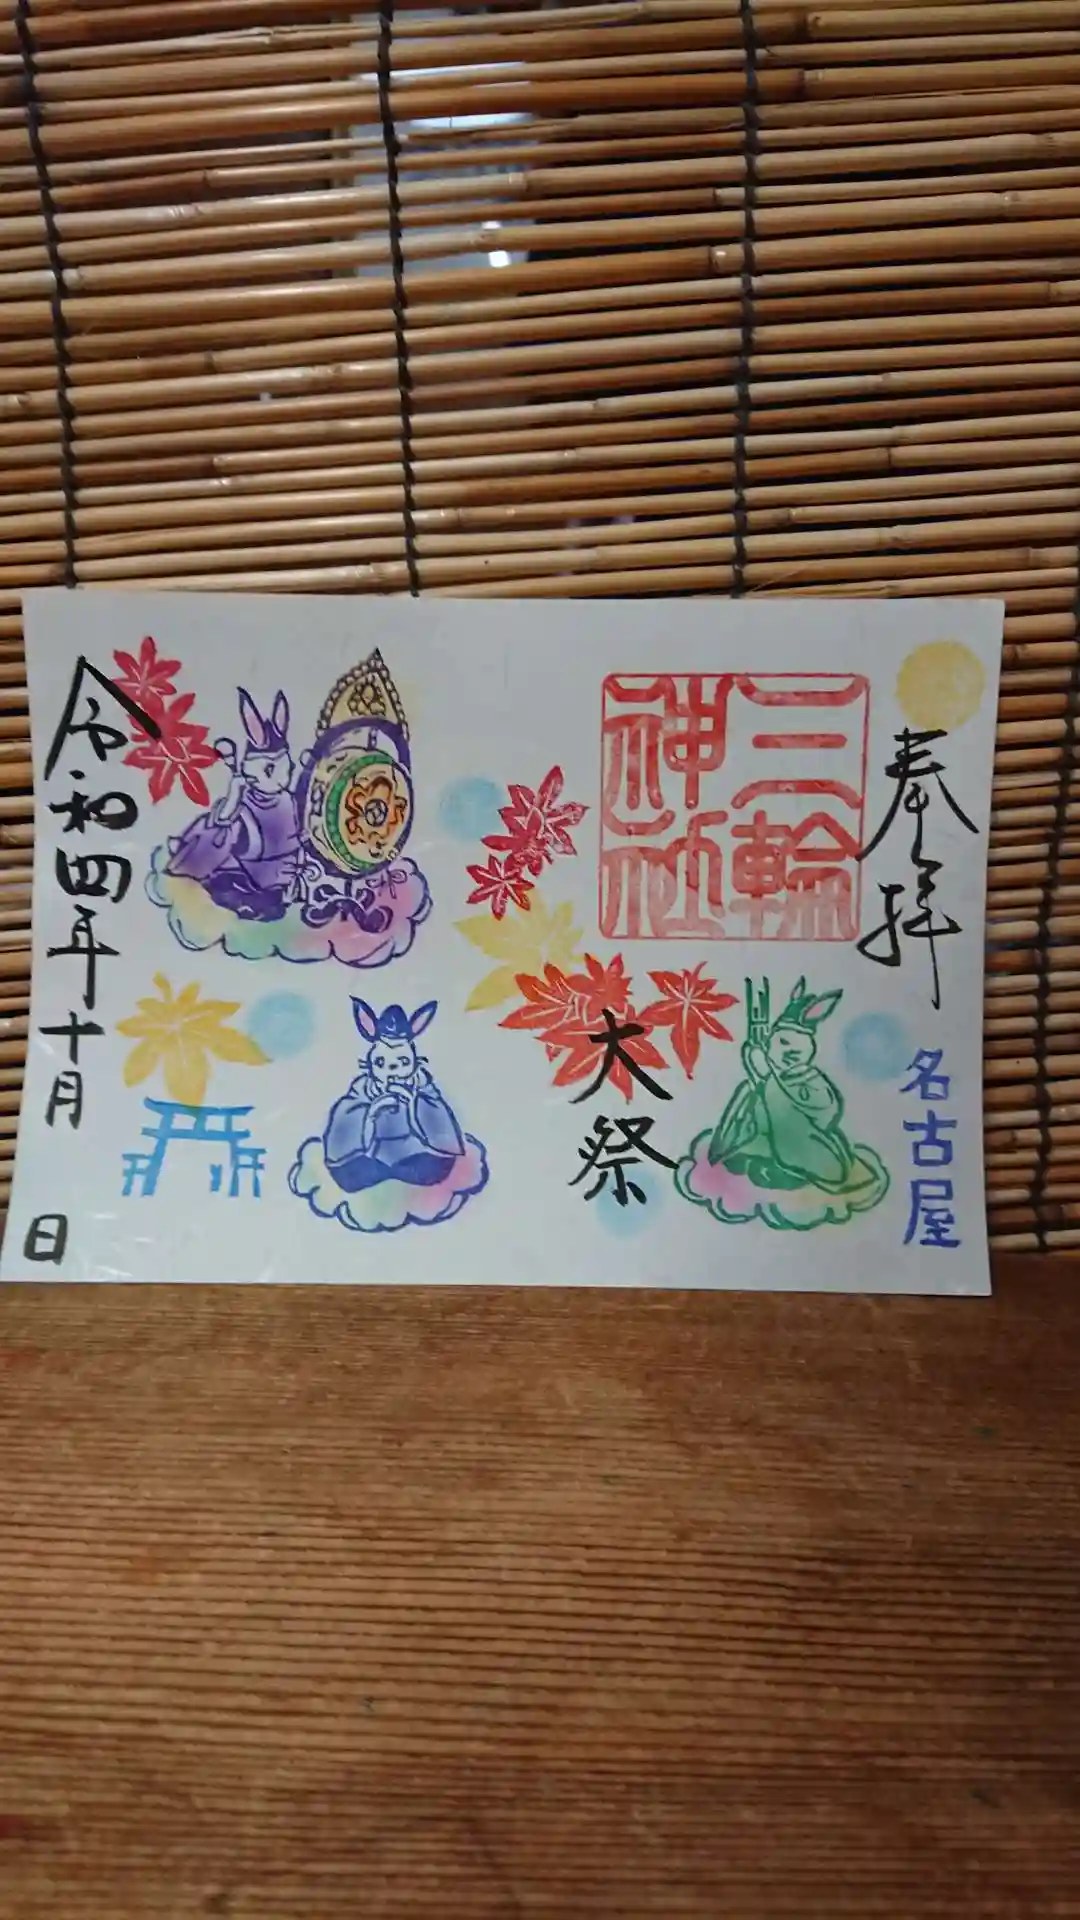 奉拝
名古屋
三輪
神社
大祭
令和四年十月　日